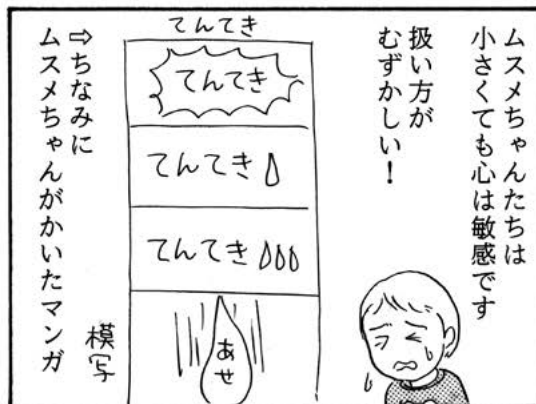 ムスメちゃんたちは
小さくても心は敏感です
扱い方が
むずかしい!
てんてき
てんてき
てんてき
てんてき
あせ
模写
⇨ちなみに
ムスメちゃんがかいたマンガ